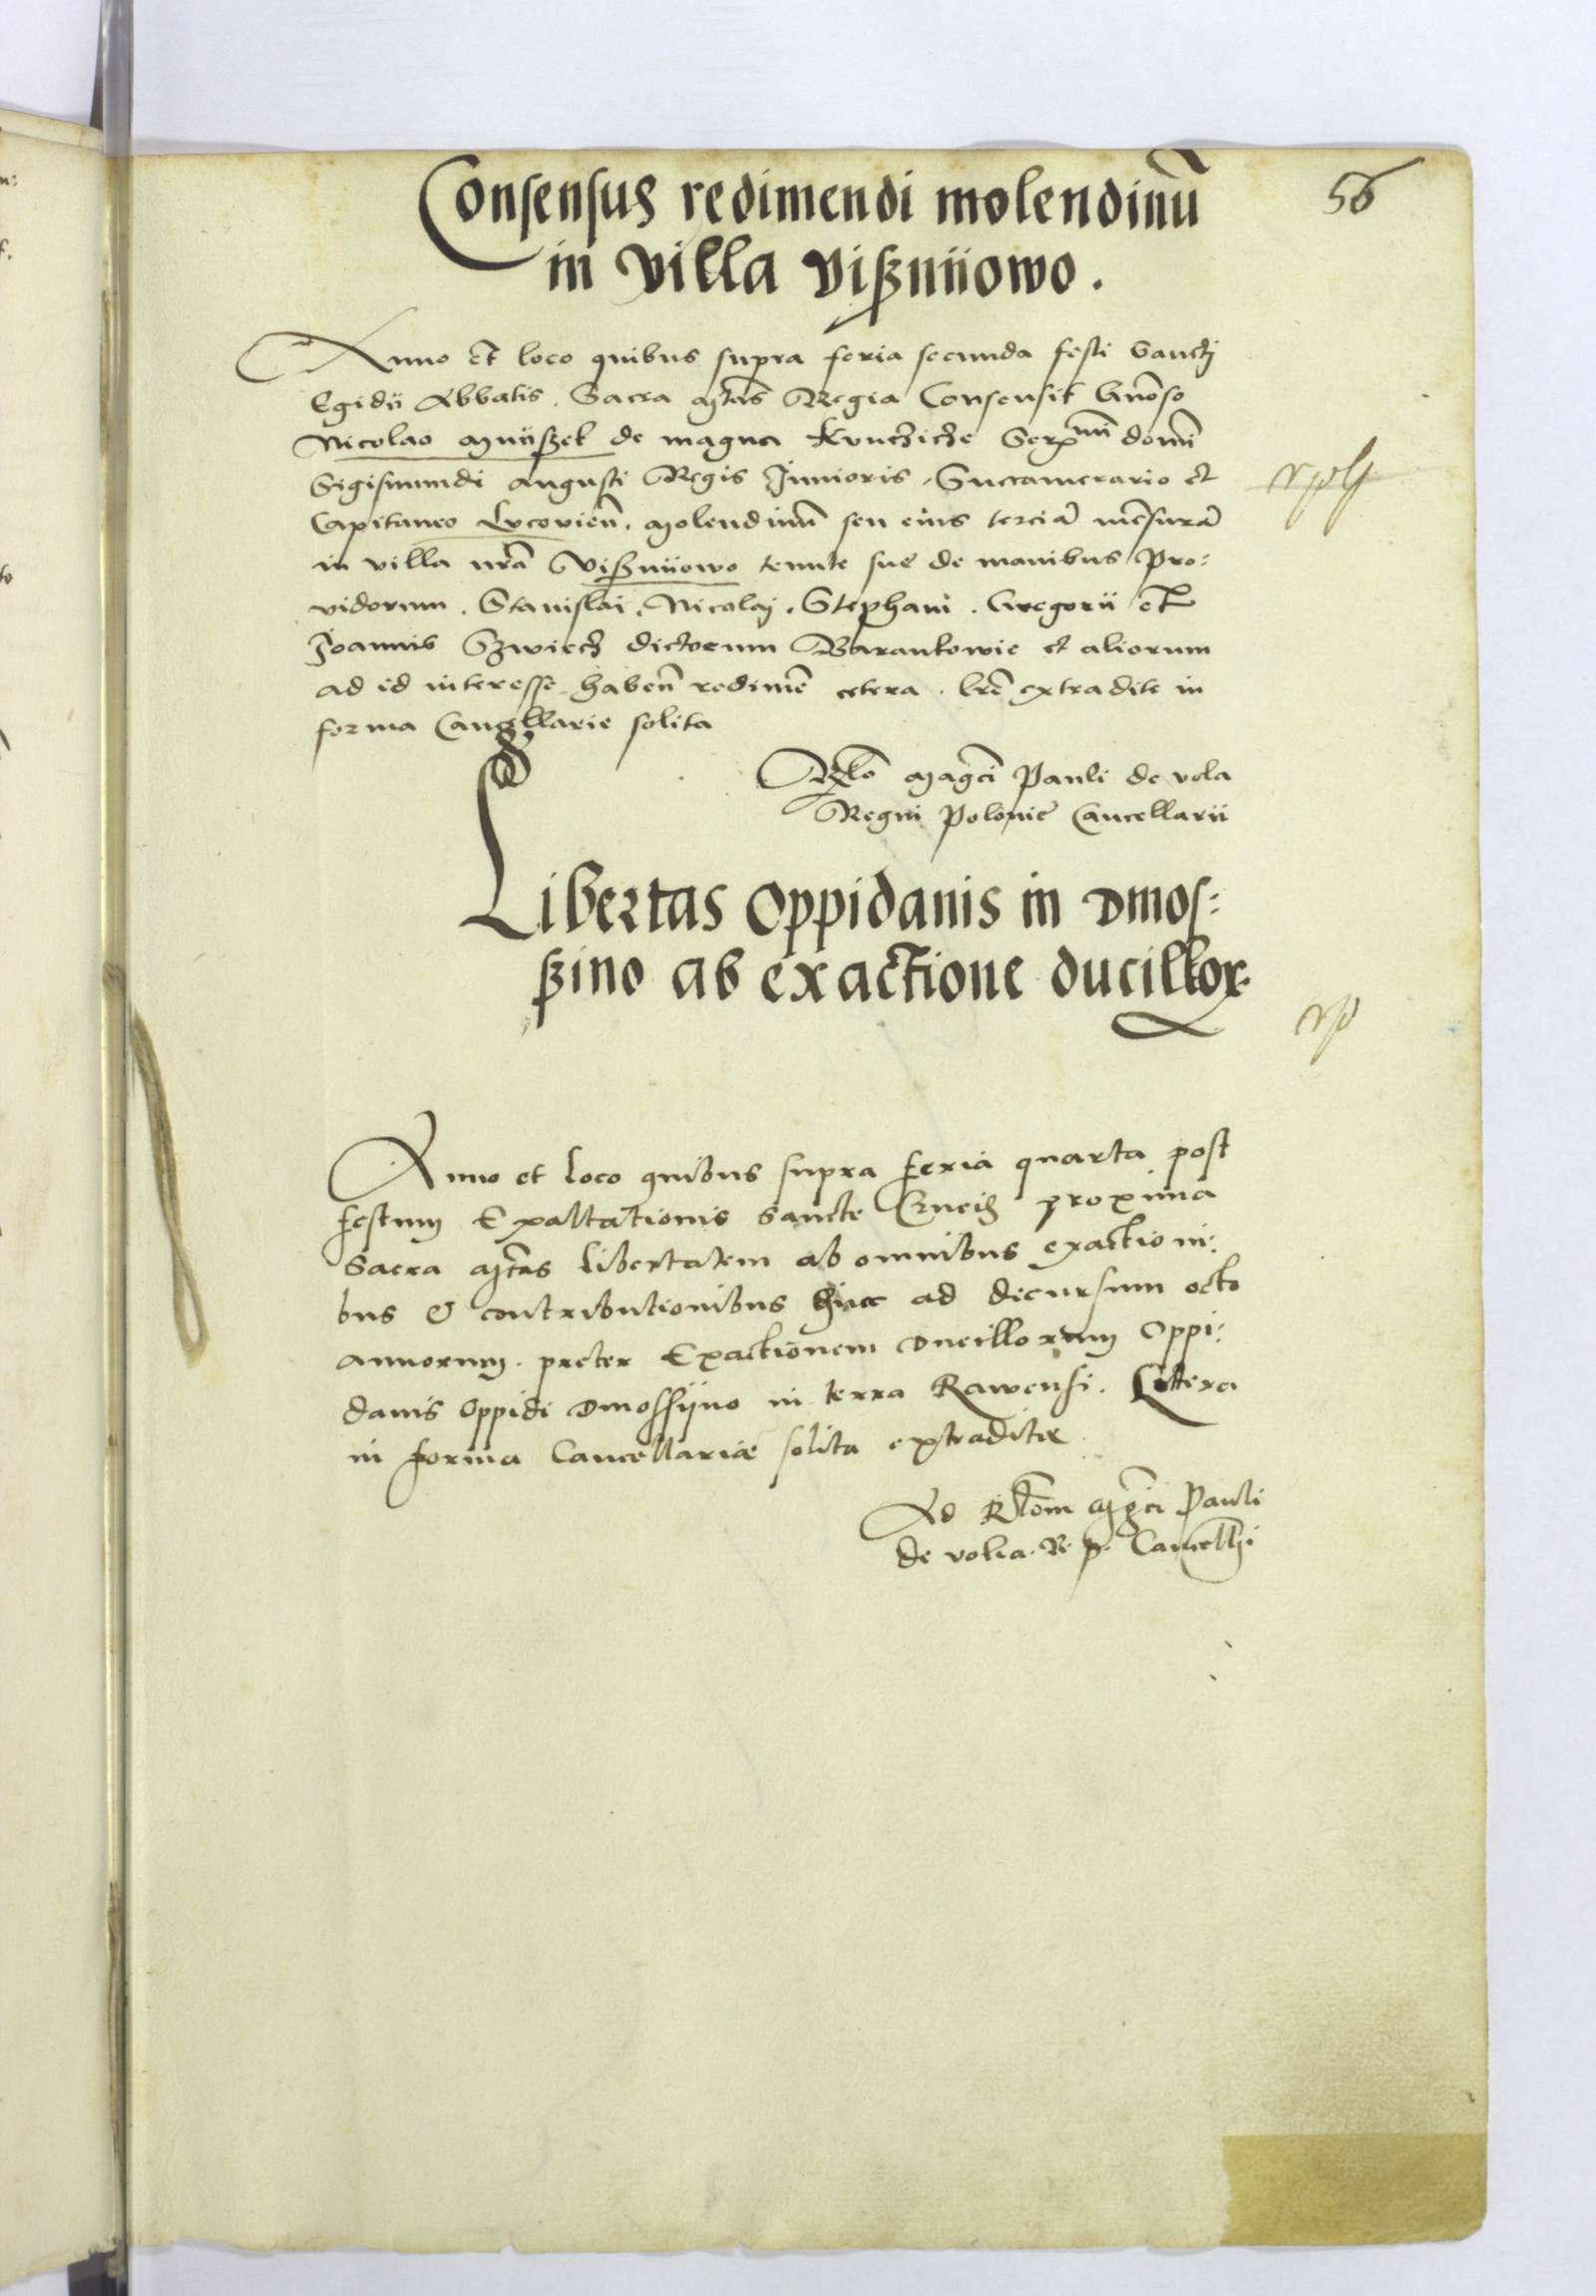 56
Consensus redimendi molendinū
in villa Vißniiowo.
Anno et loco quibus supra feria secunda festi Sancti
Egidii Abbatis. Sacra Mtas Regia Consensit Gnoso
Nicolao de magna Sermi domi
Sigismundi augusti Regis Junioris. Succamerario et
Capitaneo Lucovieñ. molendinū seu eius terciā mēsurā
in villa nrā Vißniiowo tenute sue de manibus Pro:
vidorum. Stanislai. Nicolaj. Stephani. Gregorii et
Joannis Szwiech dictorum Barankowie et aliorum
ad id interesse habeñ redimē cetera. lrē extradite in
forma Cancellarie solita
Rlo Magci Pauli de vola
Regni Polonie Cancellarii
Libertas Oppidanis in Dmos:
ßino ab exactione ducillor.
Anno et loco quibus supra feria quarta post
festum Exaltationis Sancte Crucis proxima
Sacra Mtas libertatem ab omnibus exactioni:
bus & contributionibus hinc ad decursum octo
annorum. preter Exactionem Ducillorum Oppi:
danis Oppidi Dmossijno in terra Rawensi. Littera
in forma Cancellariæ solita extradite
Ad Rlom Mgci Pauli
de volia. R. p. Cancellrii